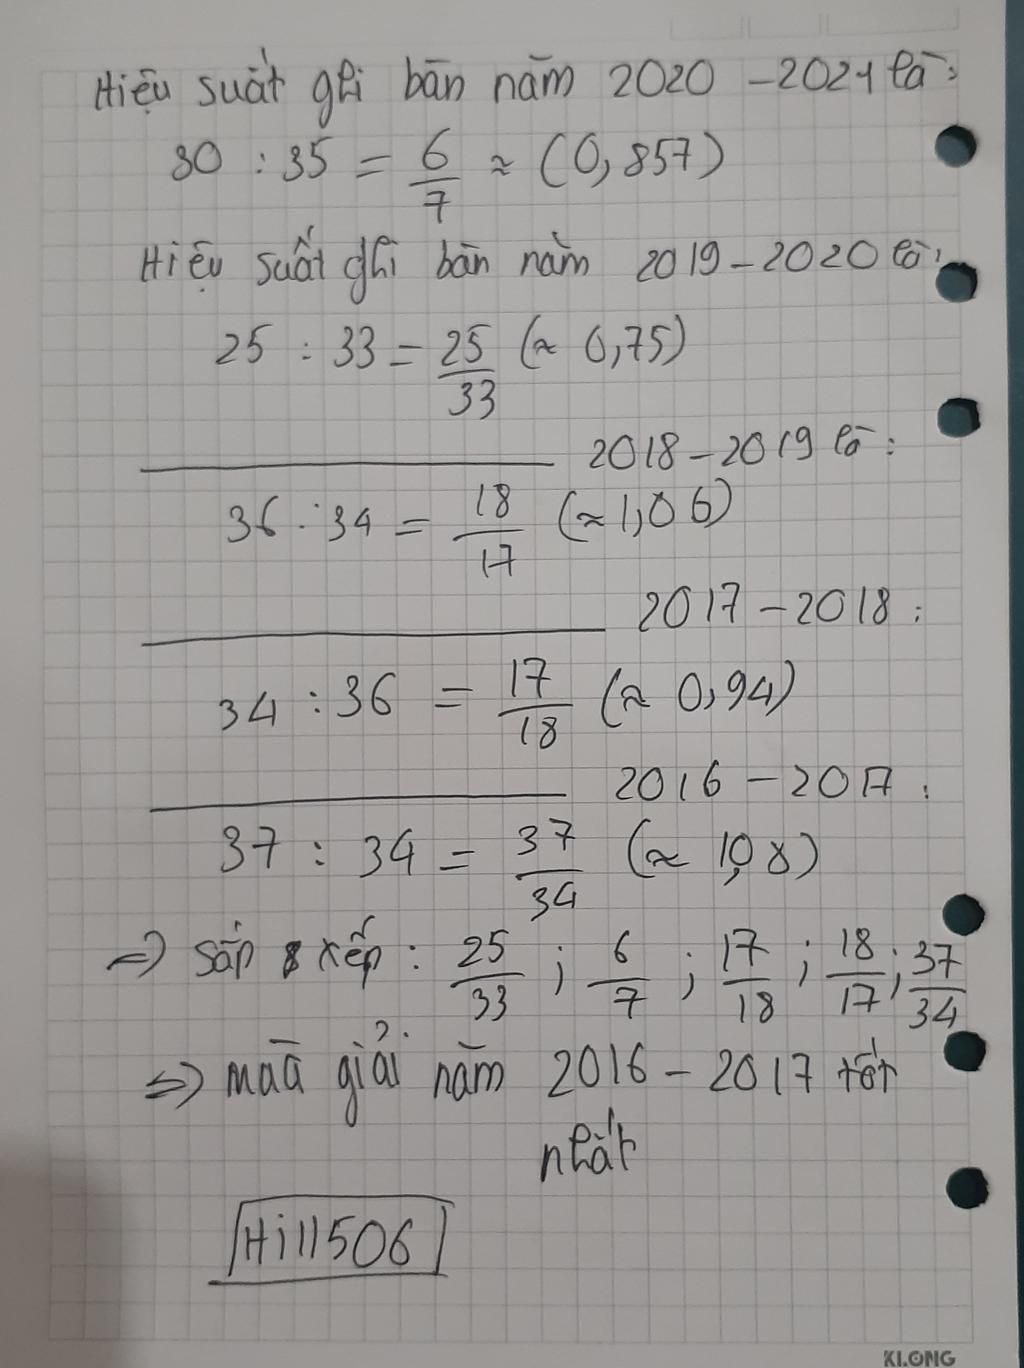 Hiệu suất ghi bàn năm 2020 - 2021 là:
30 : 35 = 6/7 ≈ (0,857)
Hiệu suất ghi bàn năm 2019 - 2020 là:
25 : 33 = 25/33 (≈ 0,75)
2018 - 2019 là:
36 : 34 = 18/17 (≈ 1,06)
2017 - 2018 :
34 : 36 = 17/18 (≈ 0,94)
2016 - 2017 :
37 : 34 = 37/34 (≈ 1,08)
=> sắp xếp : 25/33 ; 6/7 ; 17/18 ; 18/17 ; 37/34
=> mùa giải năm 2016 - 2017 tốt
nhất
Hill506
KLONG